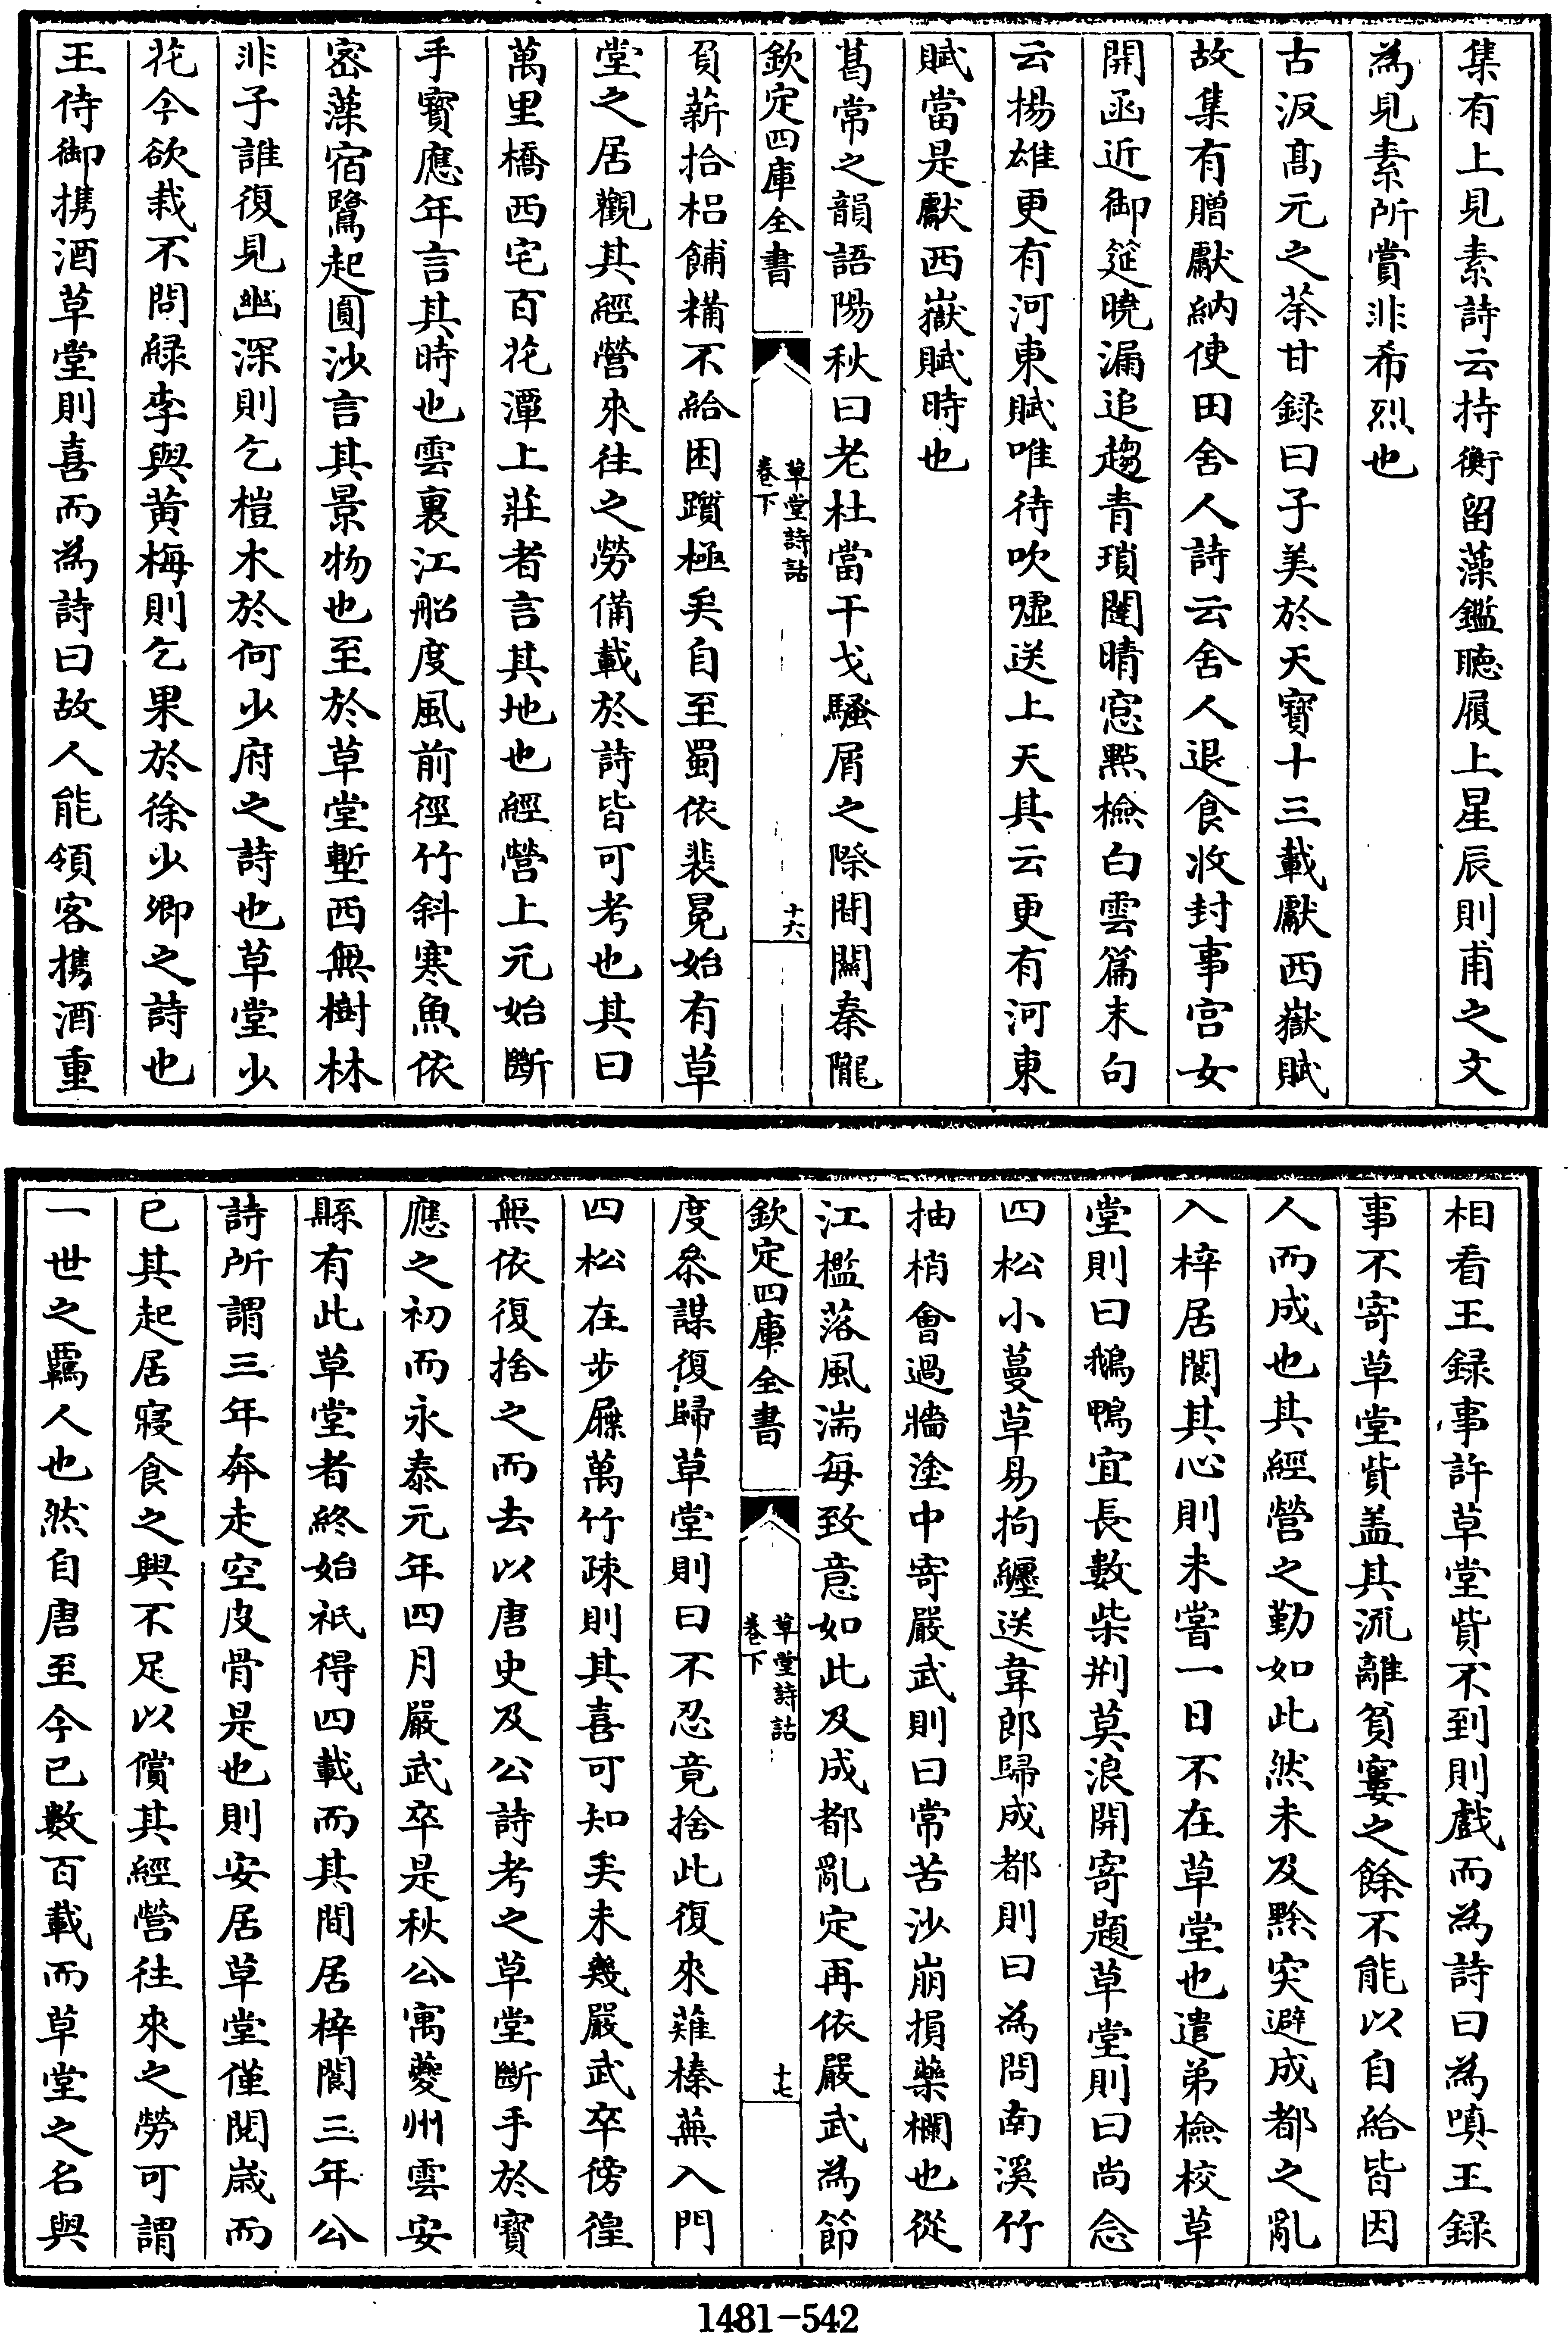 集有上見素詩云持衡留藻鑑聴履上星辰則甫之文
為見素所賞非希烈也
古汳髙元之荼甘録曰子美於天寳十三載獻西嶽賦
故集有贈獻納使田舍人詩云舍人退食收封事宫女
開函近御筵曉漏追趨青瑣闥晴窓㸃檢白雲篇末句
云揚雄更有河東賦唯待吹嘘送上天其云更有河東
賦當是獻西嶽賦時也
葛常之韻語陽秋曰老杜當干戈騷屑之際間闗秦隴
欽定四庫全書
草堂詩話
卷下
十六
負薪拾梠餔糒不給困躓極矣自至蜀依裴冕始有草
堂之居觀其經營來往之勞備載於詩皆可考也其曰
萬里橋西宅百花潭上莊者言其地也經營上元始斷
手寳應年言其時也雲裏江船度風前徑竹斜寒魚依
宻藻宿鷺起圓沙言其景物也至於草堂塹西無樹林
非子誰復見幽深則乞榿木於何少府之詩也草堂少
花今欲栽不問緑李與黄梅則乞果於徐少卿之詩也
王侍御擕酒草堂則喜而為詩曰故人能領客擕酒重
相看王録事許草堂貲不到則戲而為詩曰為嗔王録
事不寄草堂貲盖其流離貧窶之餘不能以自給皆因
人而成也其經營之勤如此然未及黔突避成都之亂
入梓居閬其心則未嘗一日不在草堂也遣弟檢校草
堂則曰鵝鴨宜長數柴荆莫浪開寄題草堂則曰尚念
四松小蔓草易拘纒送韋郎歸成都則曰為問南溪竹
抽梢㑹過牆塗中寄嚴武則曰常苦沙崩損藥欄也從
江檻落風湍每致意如此及成都亂定再依嚴武為節
欽定四庫全書
草堂詩話
卷下
十七
度叅謀復歸草堂則曰不忍竟捨此復來薙榛蕪入門
四松在步屧萬竹疎則其喜可知矣未幾嚴武卒徬徨
無依復捨之而去以唐史及公詩考之草堂斷手於寳
應之初而永泰元年四月嚴武卒是秋公寓夔州雲安
縣有此草堂者終始祇得四載而其間居梓閬三年公
詩所謂三年奔走空皮骨是也則安居草堂僅閲嵗而
已其起居寢食之興不足以償其經營往來之勞可謂
一世之羇人也然自唐至今已數百載而草堂之名與
1481-542